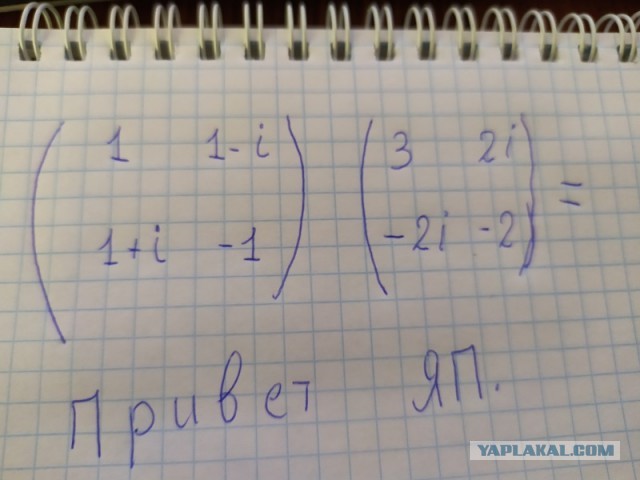 1 1-i 3 2i =
1+i -1 -2i -2
Привет ЯП.
YAPLAKAL.COM